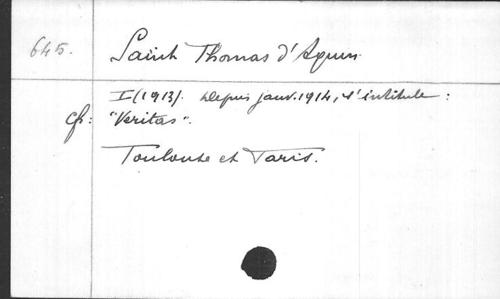 645.
Saint Thomas d'Aquin
I (1913). Depuis janv. 1914, s'intitule :
cfr: "Veritas".
Toulouse et Paris.